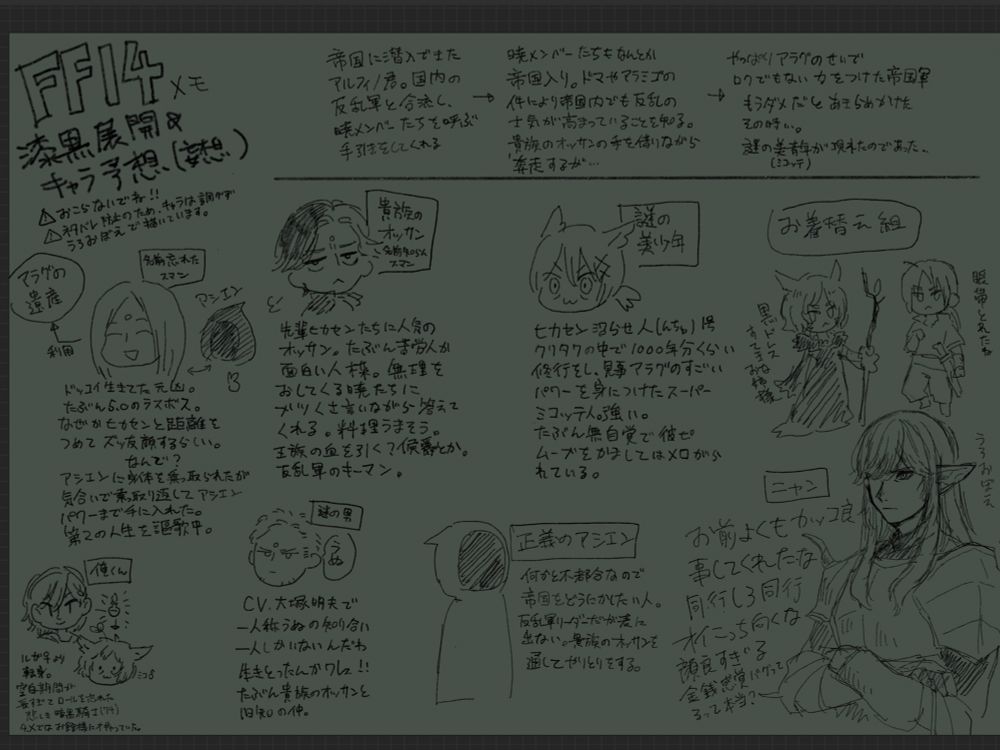 FF14メモ
漆黒展開&
キャラ予想(妄想)
⚠おこらないでね!!
⚠ネタバレ防止のため、キャラは調べず
うろおぼえで描いています。
帝国に潜入できた
アルフィノ君。国内の
反乱軍と合流し、
暁メンバーたちを呼ぶ
手引きをしてくれる
→
暁メンバーたちもなんとか
帝国入り。ドマやアラミゴの
件により帝国内でも反乱の
士気が高まっていることを知る。
貴族のオッサンの手を借りながら
奔走するが…
→
やっぱりアラグのせいで
ロクでもない力をつけた帝国軍
もうダメだとあきらめかけた
その時い。
謎の美青年が現れたのであった..
(ミコッテ)
アラグの
遺産
利用
名前忘れた
スマン
アシエン
ドッコイ生きてた元凶。
たぶん5.0のラスボス。
なぜかヒカセンと距離を
つめてズッ友顔するらしい。
なんで?
アシエンに身体を乗っ取られたが
気合いで乗っ取り返してアシエン
パワーまで手に入れた。
第2の人生を謳歌中。
貴族の
オッサン
名前知らん
スマン
先輩ヒカセンたちに人気の
オッサン。たぶん苦労人か
面白い人枠。無理を
おしてくる暁たちに
ブツクサ言いながら答えて
くれる。料理うまそう。
王族の血を引く?侯爵とか。
反乱軍のキーマン。
謎の
美少年
ヒカセン沼らせ人(んちゅ)1号
クリタワの中で1000年分くらい
修行をし、見事アラグのすごい
パワーを身につけたスーパー
ミコッテ人。強い。
たぶん無自覚で彼ピ
ムーブをかましてはメロがら
れている。
お着替え組
黒いドレス
すてきなお姉様
眼帯とれたね
俺くん
ルガ♀より
転身。
ミコ♂
謎の男
うぬ
CV.大塚明夫で
一人称うぬの知り合い
一人しかいないんだわ
生きとったんかワレェ!!
たぶん貴族のオッサンと
旧知の仲。
正義のアシエン
何かと不都合なので
帝国をどうにかしたい人。
反乱軍リーダーだが表に
出ない。貴族のオッサンを
通してやりとりをする。
ニャン
うろおぼえ
お前よくもカッコ良い
事してくれたな
同行しろ同行
オイこっち向くな
顔良すぎる
金銭感覚バグって
るって本当?